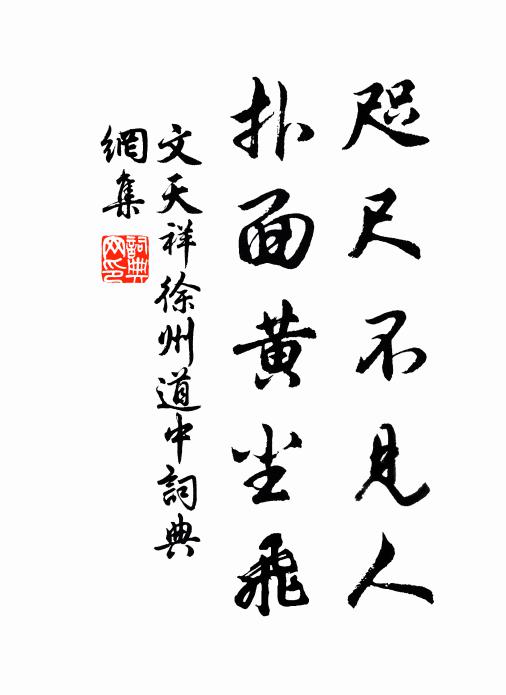 咫尺不見人
扑面黄尘飛
文天祥徐州道中詞典
網集
詞典
网印